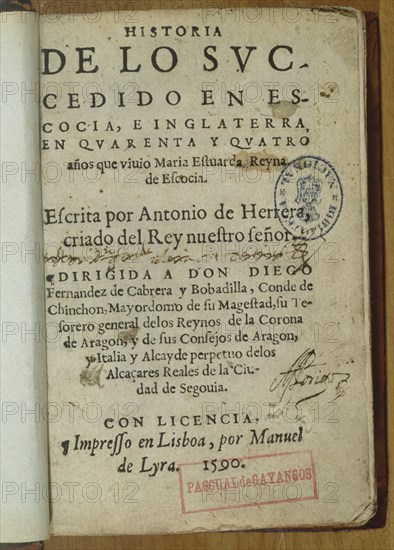 HISTORIA
DE LO SVC-
CEDIDO EN ES-
COCIA, E INGLATERRA,
EN QVARENTA Y QVATRO
años que viuio Maria Estuarda, Reyna
de Escocia.
Escrita por Antonio de Herrera,
criado del Rey nuestro señor.
DIRIGIDA A DON DIEGO
Fernandez de Cabrera y Bobadilla, Conde de
Chinchon, Mayordomo de su Magestad, su Te-
sorero general delos Reynos de la Corona
de Aragon, y de sus Consejos de Aragon,
y Italia y Alcayde perpetuo delos
Alcaçares Reales de la Ciu-
dad de Segouia.
CON LICENCIA,
Impresso en Lisboa, por Manuel
de Lyra. 1590.
PASCUAL de GAYANGOS
PHOTO12